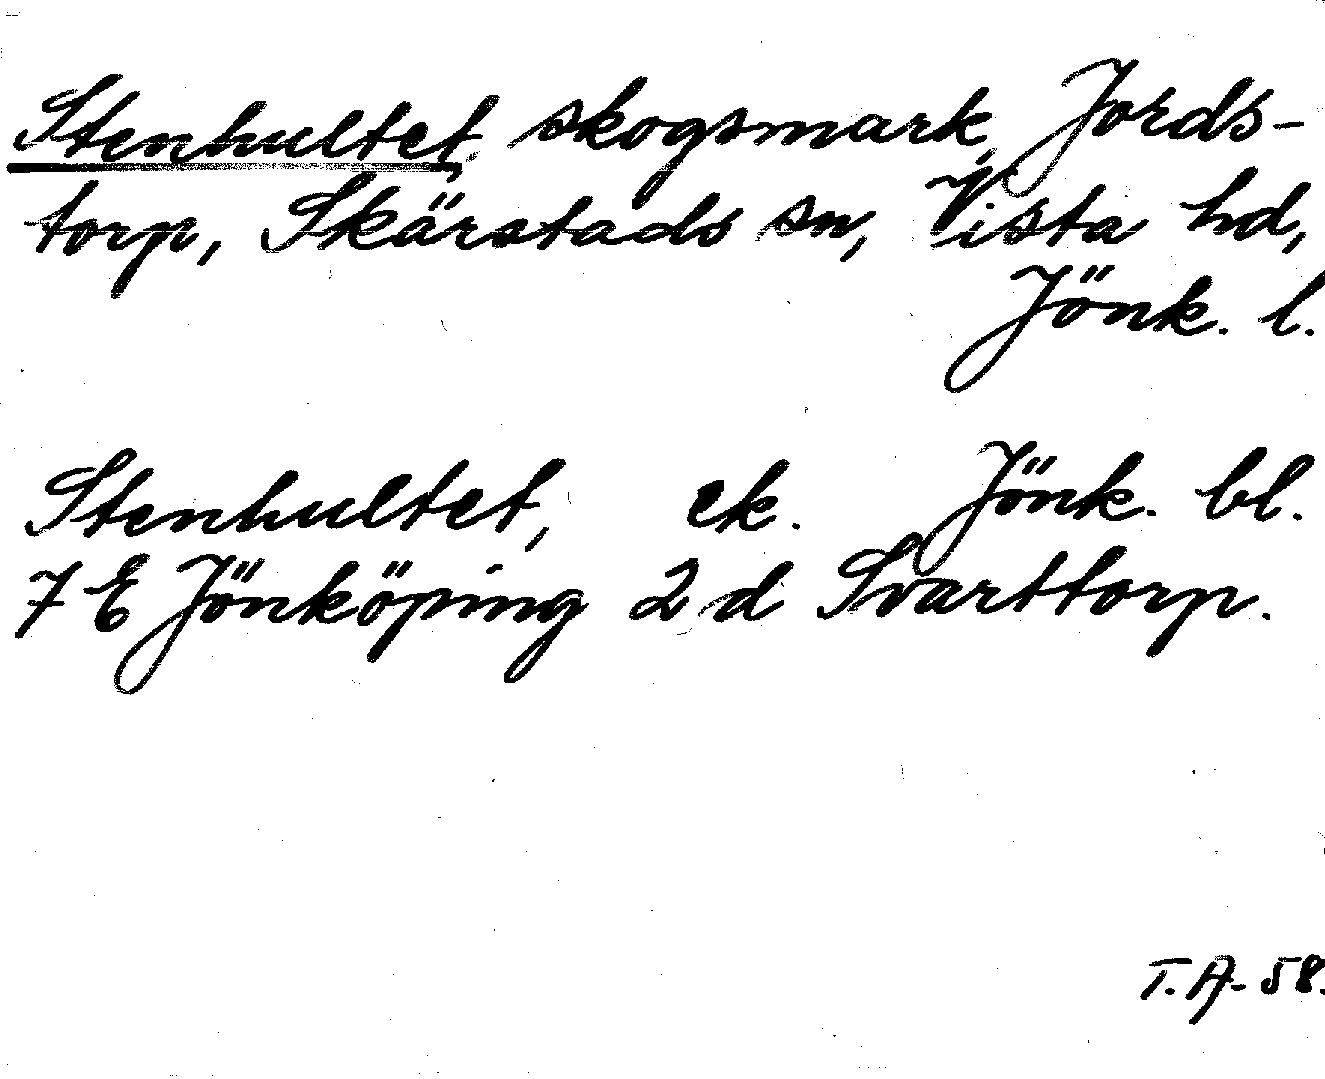 Stenhultet, skogsmark, Jords-
torp, Skärstads sn, Vista hd,
Jönk. l.
Stenhultet, ek. Jönk. bl.
7 E Jönköping 2 d Svarttorp.
T. A. 58.